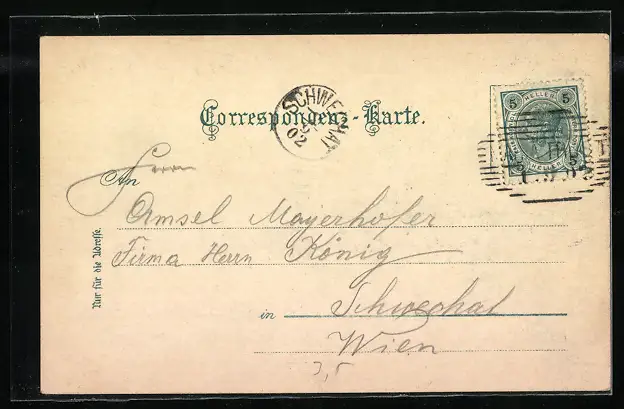 Correspondenz-Karte.
SCHWECHAT
02
5 HELLER 5
Herrn
An
Amsel Mayerhofer
Firma Herrn König
in Schwechat
Wien
Nur für die Adresse.